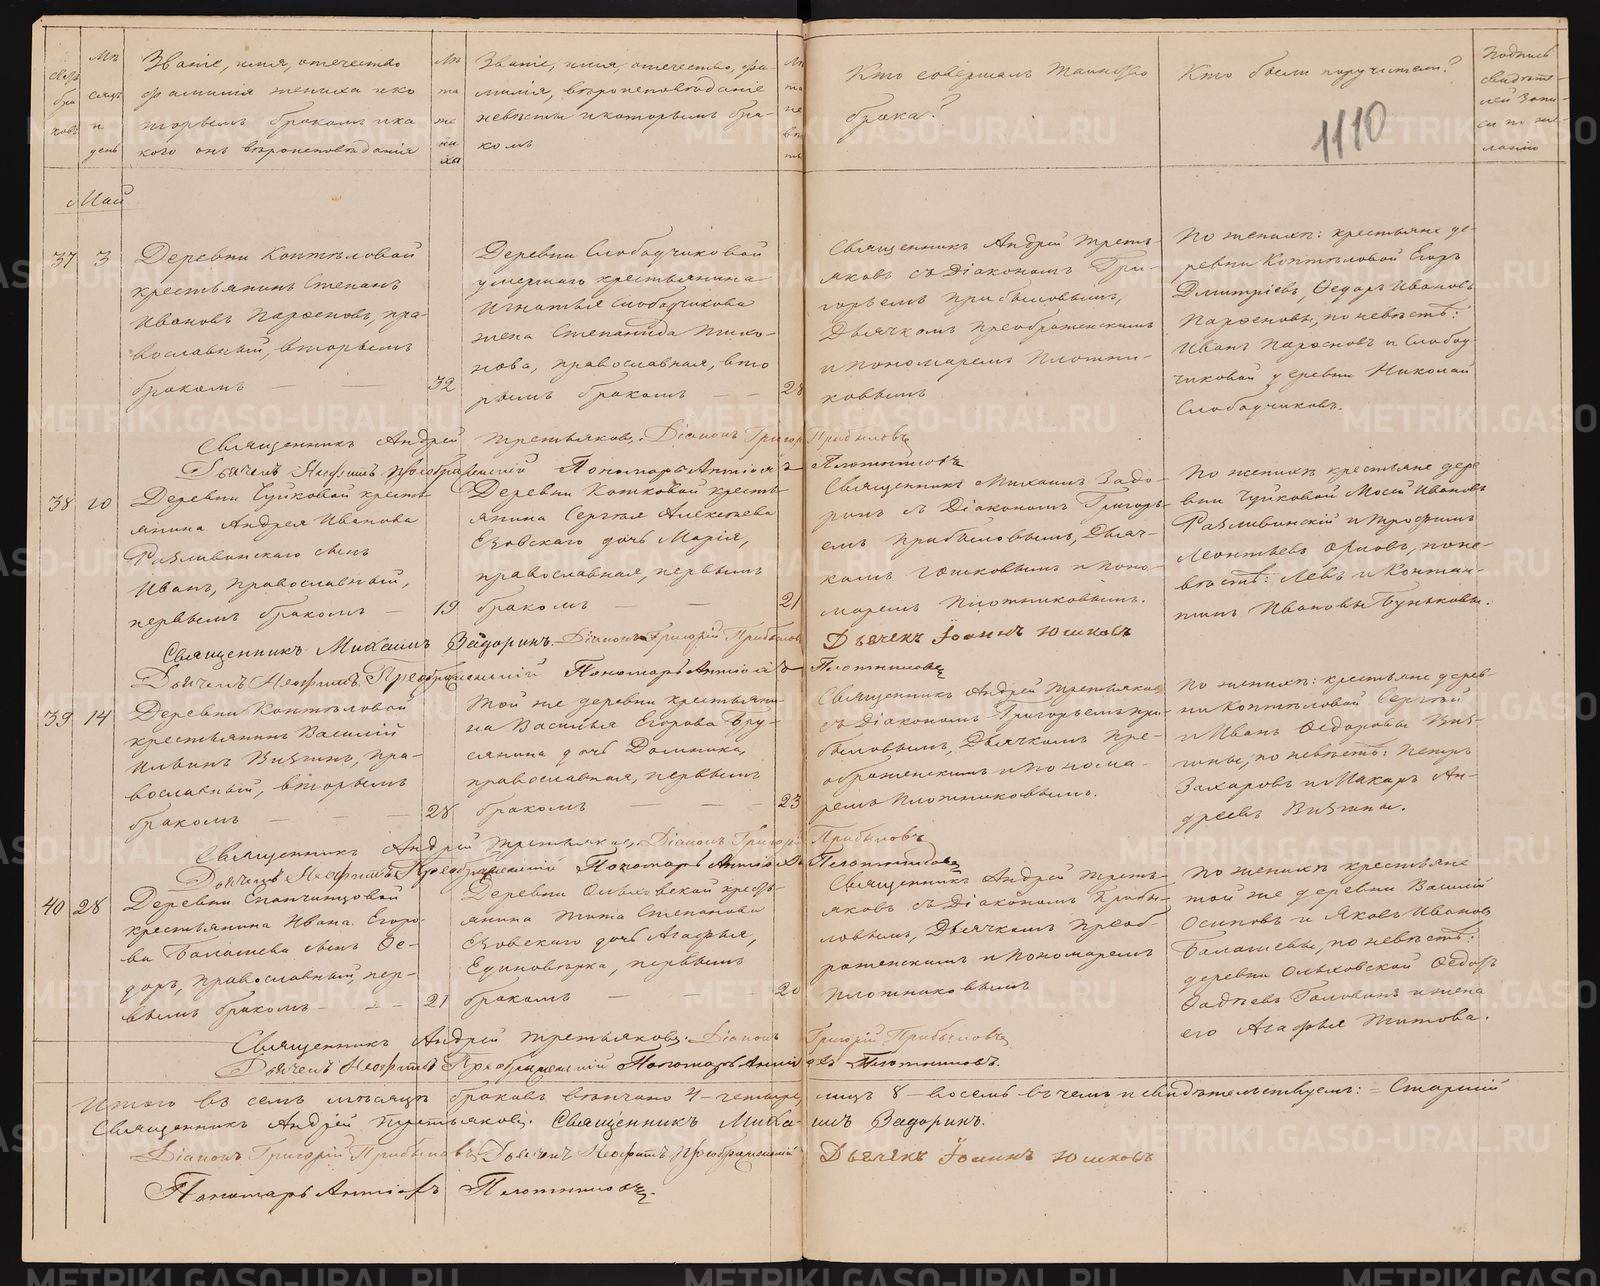 Счетъ бра ковъ
Мѣ сяцъ и день
Званіе, имя, отечество
фамилія жениха и ко
торымъ бракомъ и ка
кого онъ вѣроисповѣданія
Лѣ та же ни ха
Званіе, имя, отечество, фа
милія, вѣроисповѣданіе
невѣсты и которымъ бра-
комъ
Лѣ та не вѣ ты
Кто совершалъ таинство
брака?
Кто были поручители?
Подпись
свидѣте-
лей запи-
си по же-
ланію
1110
Май
37
3
Деревни Коптѣловой
крестьянинъ Степанъ
Ивановъ Парѳеновъ, пра-
вославный, вторымъ
бракомъ — —
32
Деревни Слободчиковой
умершаго крестьянина
Игнатья Слободчикова
жена Степанида Тихо-
нова, православная, вто
рымъ бракомъ — —
28
Священникъ Андрей Треть-
яковъ съ Діакономъ Гри-
горьемъ Прибыловымъ,
Дьячкомъ Преображенскимъ
и пономаремъ Плотни-
ковымъ
По женихѣ: крестьяне де-
ревни Коптѣловой Егоръ
Дмитріевъ, Ѳедоръ Ивановъ
Парѳеновы, по невѣстѣ:
Иванъ Парѳеновъ и Слобод
чиковой деревни Николай
Слободчиковъ.
Священникъ Андрей Третьяковъ. Діаконъ Григорій Прибыловъ
Дьячекъ Неофитъ Преображенскій Пономарь Антіохъ Плотниковъ
38
10
Деревни Чуйковой кресть-
янина Андрея Иванова
Разливинскаго сынъ
Иванъ, православный,
первымъ бракомъ —
19
Деревни Коптѣловой кресть-
янина Сергѣя Алексѣева
Езовскаго дочь Марія,
православная, первымъ
бракомъ — —
21
Священникъ Михаилъ Задо-
ринъ съ Діакономъ Григорь-
емъ Прибыловымъ, Дьяч-
комъ Юшковымъ и поно-
маремъ Плотниковымъ.
По женихѣ крестьяне дере
вни Чуйковой Мосей Ивановъ
Разливинскій и Трофимъ
Леонтьевъ Орловъ, по не-
вѣстѣ: Левъ и Констан-
тинъ Ивановы Буньковы.
Священникъ Михаилъ Задоринъ. Діаконъ Григорій Прибыловъ Дьячекъ Іоаннъ Юшковъ
Дьячекъ Неофитъ Преображенскій Пономарь Антіохъ Плотниковъ
39
14
Деревни Коптѣловой
крестьянинъ Василій
Ильинъ Визгинъ, пра-
вославный, вторымъ
бракомъ — — —
28
Той же деревни крестьяни-
на Василья Егорова Бру-
сянина дочь Домника,
православная, первымъ
бракомъ — — —
23
Священникъ Андрей Третьяковъ
съ Діакономъ Григорьемъ При-
быловымъ, Дьячкомъ Пре-
ображенскимъ и понома-
ремъ Плотниковымъ.
По женихѣ: крестьяне дерев-
ни Коптѣловой Сергѣй
и Иванъ Ѳедоровы Виз-
гины, по невѣстѣ: Петръ
Захаровъ и Макаръ Ан-
дреевъ Визгины.
Священникъ Андрей Третьяковъ. Діаконъ Григорій Прибыловъ
Дьячекъ Неофитъ Преображенскій Пономарь Антіохъ Плотниковъ
40
28
Деревни Епанчинцовой
крестьянина Ивана Егоро-
ва Балашева сынъ Ѳе-
доръ, православный, пер-
вымъ бракомъ — — —
21
Деревни Ольховской кресть-
янина Тита Степанова
Езовскаго дочь Агафья,
Единовѣрка, первымъ
бракомъ — —
20
Священникъ Андрей Треть-
яковъ съ Діакономъ Прибы-
ловымъ, Дьячкомъ Преоб-
раженскимъ и Пономаремъ
Плотниковымъ
По женихѣ крестьяне
той же деревни Василій
Осиповъ и Яковъ Ивановъ
Балашевы, по невѣстѣ:
деревни Ольховской Ѳедоръ
Ѳадѣевъ Головинъ и жена
его Агафья Титова.
Священникъ Андрей Третьяковъ. Діаконъ Григорій Прибыловъ
Дьячекъ Неофитъ Преображенскій Пономарь Антіохъ Плотниковъ.
Итого въ семъ мѣсяцѣ браковъ вѣнчано 4 - четыре, лицъ 8 - восемь въ чемъ и свидѣтельствуемъ: - Старшій
Священникъ Андрей Третьяковъ. Священникъ Михаилъ Задоринъ.
Діаконъ Григорій Прибыловъ Дьячекъ Неофитъ Преображенскій Дьячекъ Іоаннъ Юшковъ
Пономарь Антіохъ Плотниковъ.
METRIKI.GASO-URAL.RU